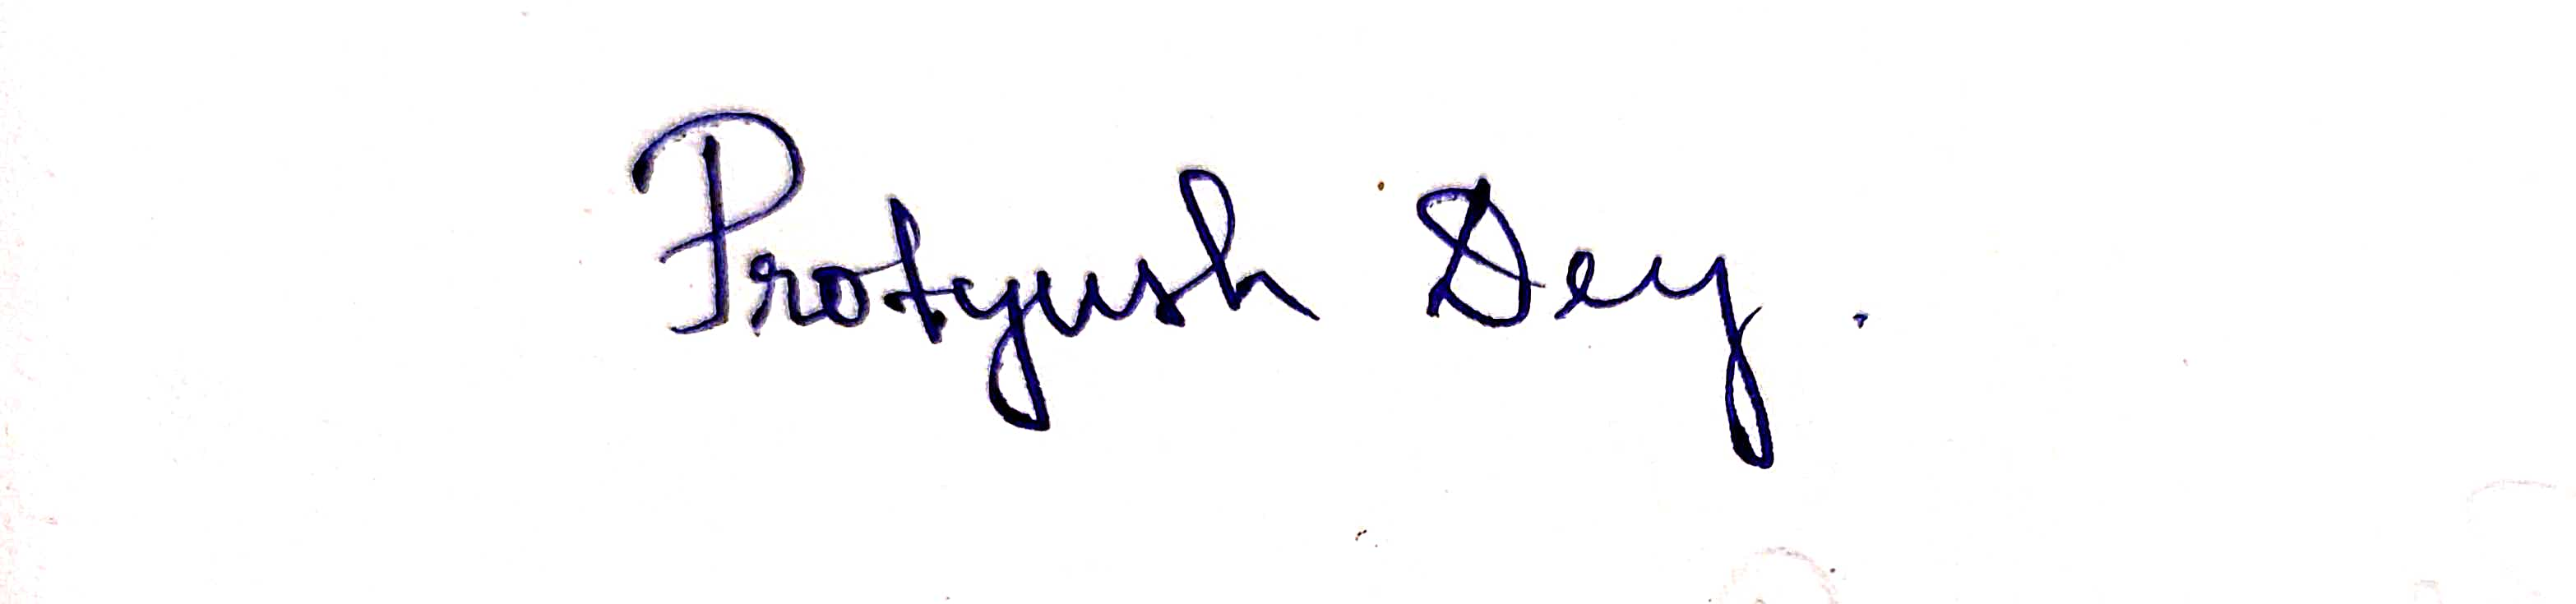 Protyush Dey.